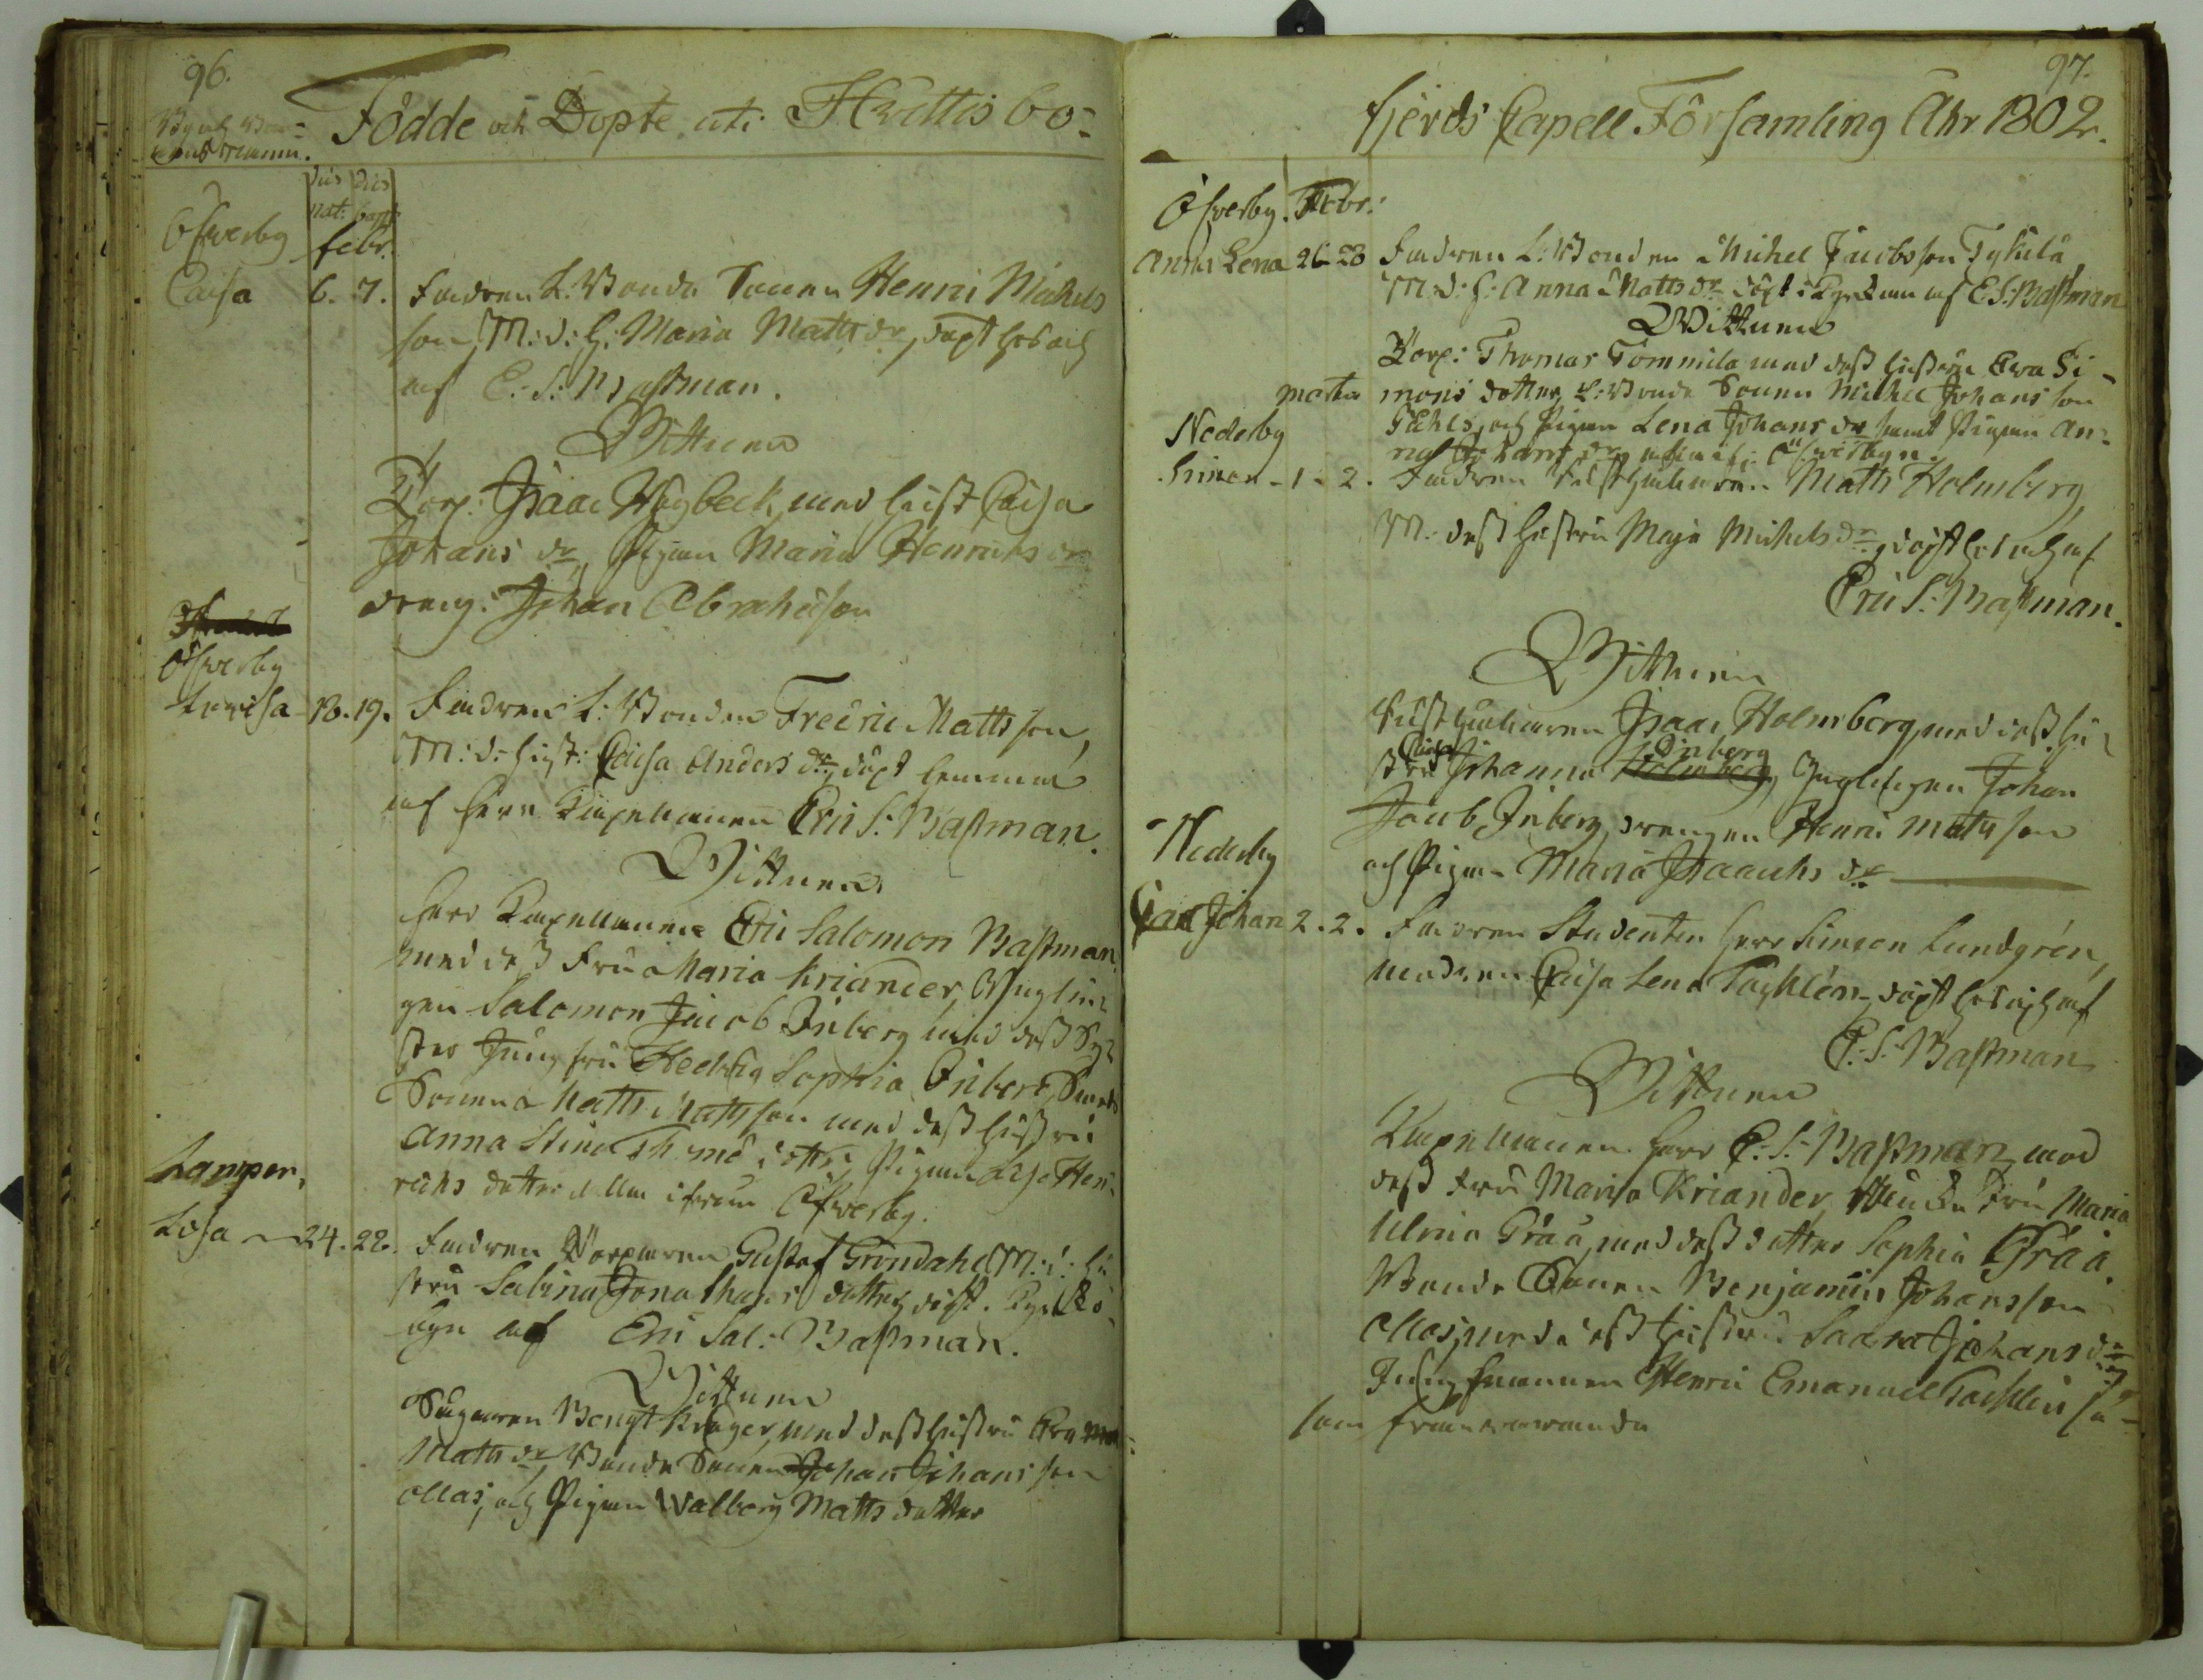 96.
By och Bar-
Födde och Dopte uti Hvittis bo-
dies dies
nat: bapt
Öfverby febr.
Caisa 6. 7. Fadren L: Bonde Sonen Henric Michels
son, M: d: H: Maria Matts dr, döpt hos mig
af E: S: Bastman.
Vittnen
Korp: Isaac Högbeck med Hust Caisa
Johans dr, Pigan Maria Henrichs dr
dreng: Johan Abrahason
Öfverby
Lovisa 18. 19. Fadren L: Bonden Fredric Mattsson,
M: d: Hust: Caisa Anders dr, döpt hemma
af Herr Capellanen Eric S: Bastman.
Vittnen
Herr Capellanen Eric Salomon Bastman
med dess Fru Maria Kriander, Ynglin-
gen Salomon Jacob Inberg med dess Sys-
ter Jungfru Hedvig Sophia Inberg,
Sonen Matts Mattsson med dess hustru
Anna Stina dotter, Pigan Hen-
richs dotter alla ifrån Öfverby.
Kamper,
Lisa 24. 28. Fadren Gustaf Gröndahl M: d: Hu-
stru Sabina Jonathans dotter, döpt.
af Eric Sal: Bastman.
Vittnen
Bengt Kräger med dess hustru Eva
Matts dr, Bonde Sonen Johan Johansson
Ollas, och Pigan Walborg Matts dotter
97.
fjerds Capell Församling Åhr 1802.
Öfverby. Febr:
Anna Lena 26 28 Fadren L: Bonden Michel Jacobsson Tykilä
M: d: H: Anna Matts dr döpt i Kyrkan af E. S: Bastman
Vittnen
Korp: Thomas Tommila med dess hustru Eva Si-
martii mons dotter, L: Bonde Sonen Michel Johansson
Nederby och Pigan Lena Johans dr samt Pigan An-
na Johans dr, Öfverbyn.
Simon - 1 - 2. Fadren Matts Holmberg,
M: dess Hustru Maja Michels dr, döpt hos mig af
Eric S: Bastman.
Vittnen
Isaac Holmberg, med dess hu-
stru Johanna Inberg, Ynglingen Johan
Jacob Inberg, drengen Henric Mattsson
Nederby och Pigan Maria Isaachs dr
Carl Johan 2. 2. Fadren Studenten Herr Simeon Lundgrén,
modren Caisa Lena Tacklén, döpt hos mig af
E: S: Bastman
Vittnen
Capellanen Herr E: S: Bastman, med
dess Fru Maria Kriander, Enke Fru Maria
Ulrica Gråå, med dess dotter Sophia Gråå.
Bonde Sonen Benjamin Johansson
Ollas, med dess hustru Saara Johans dr,
Henric Emanuel Tacklin så-
som frånvarande